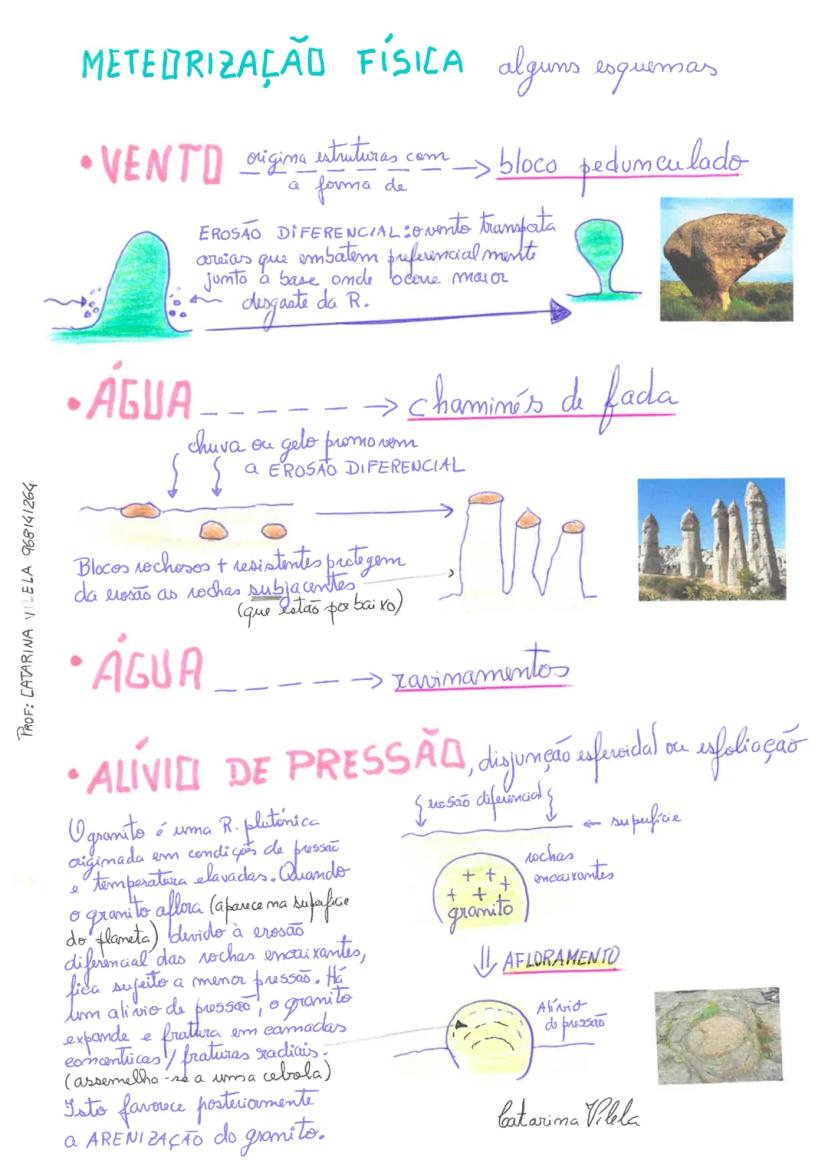 METEORIZAÇÃO FÍSICA alguns esquemas
• VENTO origina estruturas com
a forma de
bloco pedunculado
EROSÃO DIFERENCIAL: o vento transporta
areias que embatem preferencialmente
junto à base onde ocorre maior
desgaste da R.
• ÁGUA chaminés de fada
chuva ou gelo promovem
a EROSÃO DIFERENCIAL
Blocos rochosos + resistentes protegem
da erosão as rochas subjacentes
(que estão por baixo)
• ÁGUA ravinamentos
• ALÍVIO DE PRESSÃO, disjunção esferoidal ou esfoliação
O granito é uma R. plutónica
originada em condições de pressão
e temperatura elavadas. Quando
o granito aflora (aparece na superfície
do planeta) devido à erosão
diferencial das rochas encaixantes,
fica sujeito a menor pressão. Há
um alívio de pressão, o granito
expande e fratura em camadas
concêntricas / fraturas radiais.
(assemelha-se a uma cebola)
Isto favorece posteriormente
a ARENIZAÇÃO do granito.
erosão diferencial
superfície
rochas
encaixantes
granito
AFLORAMENTO
Alívio
de pressão
Catarina Vilela
PROF: CATARINA VILELA 968141264